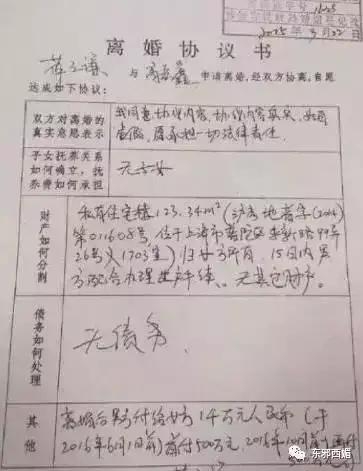 离婚协议书
与 申请离婚,经双方协商,自愿
达成如下协议:
双方对离婚的
真实意思表示
我同意协议内容,协议内容真实,如有
虚假,愿承担一切法律责任.
子女抚养关系
如何确立,抚
养费如何承担
无子女
财产如何分割
私有住宅楼123.34m²(沪房地普字(2014)
第011608号,位于上海市普陀区 99弄
26号 1703室)归女方所有,15日内男
方配合办理过户手续. 无其它财产.
债务如何处理
无债务.
其他
离婚后男方付给女方1千万元人民币(于
2015年6月1日前)首付500万元,2015年10月
东邪西媚